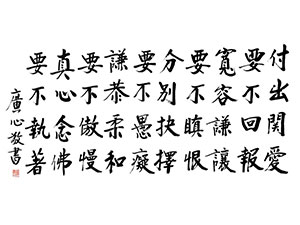 付出關愛
要不回報
寬容謙讓
要不瞋恨
分別抉擇
要不愚癡
謙恭柔和
要不傲慢
真心念佛
要不執著
廣心敬書